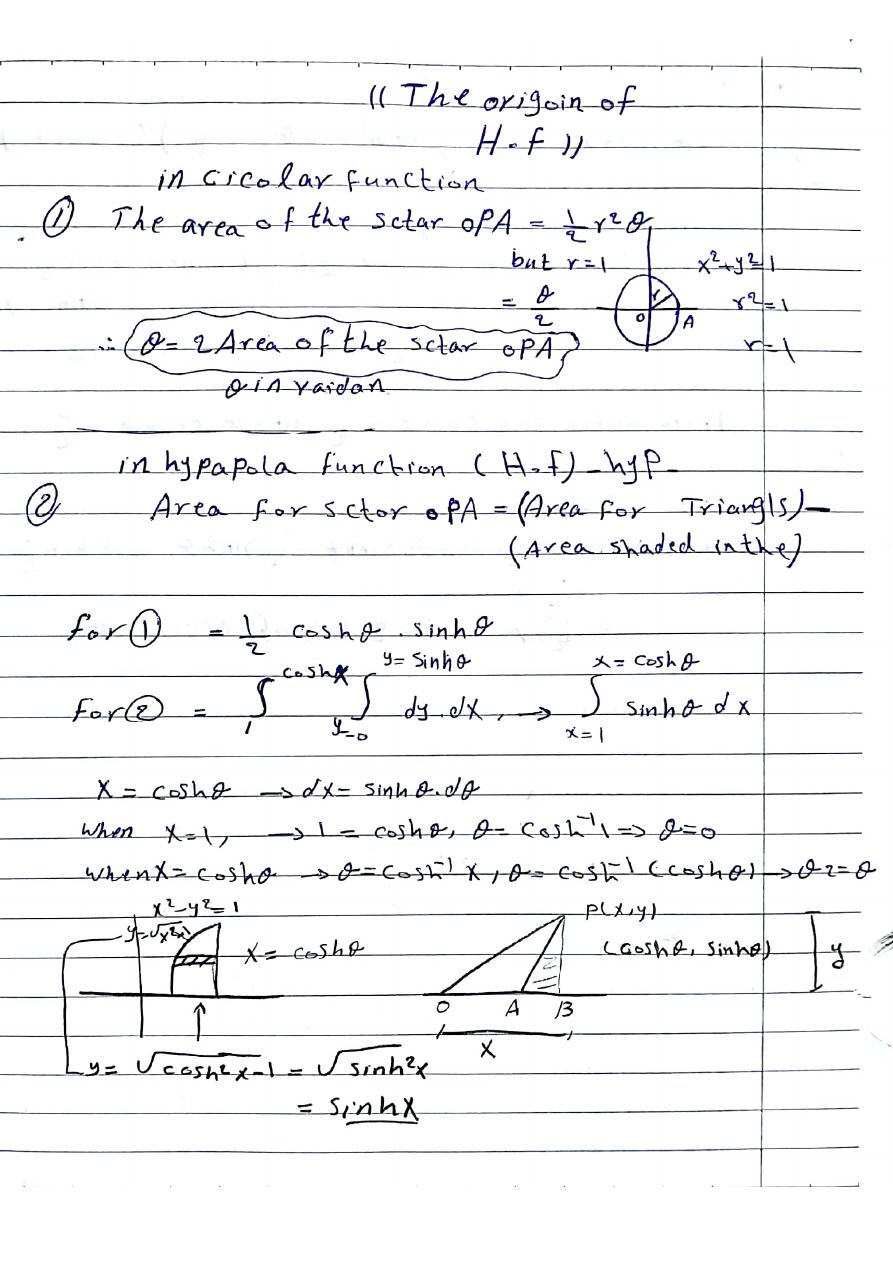 (( The origoin of
H.f ))
in cicolar function
① The area of the sctar OPA = 1/2 r²θ
but r=1
x²+y²=1
= θ/2
r²=1
r
O
A
∴ θ= 2 Area of the sctar OPA
r=1
θ in raidan
in hypapola function (H.f)-hyp-
② Area for sctor OPA = (Area for Triangls) –
(Area shaded in the)
for ① = 1/2 coshθ . sinhθ
for ② = ∫_1^coshx ∫_y=0^y=sinhθ dy.dx, → ∫_x=1^x=coshθ sinhθ dx
x = coshθ → dx= sinhθ.dθ
when x=1, → 1 = coshθ, θ= cosh⁻¹1 => θ=0
when x= coshθ → θ=cosh⁻¹ x, θ= cosh⁻¹ (coshθ) → θ2=θ
x²-y²=1
P(x,y)
x= coshθ
(coshθ, sinhθ)
y
O A B
x
y= √cosh²x-1 = √sinh²x
= sinhx